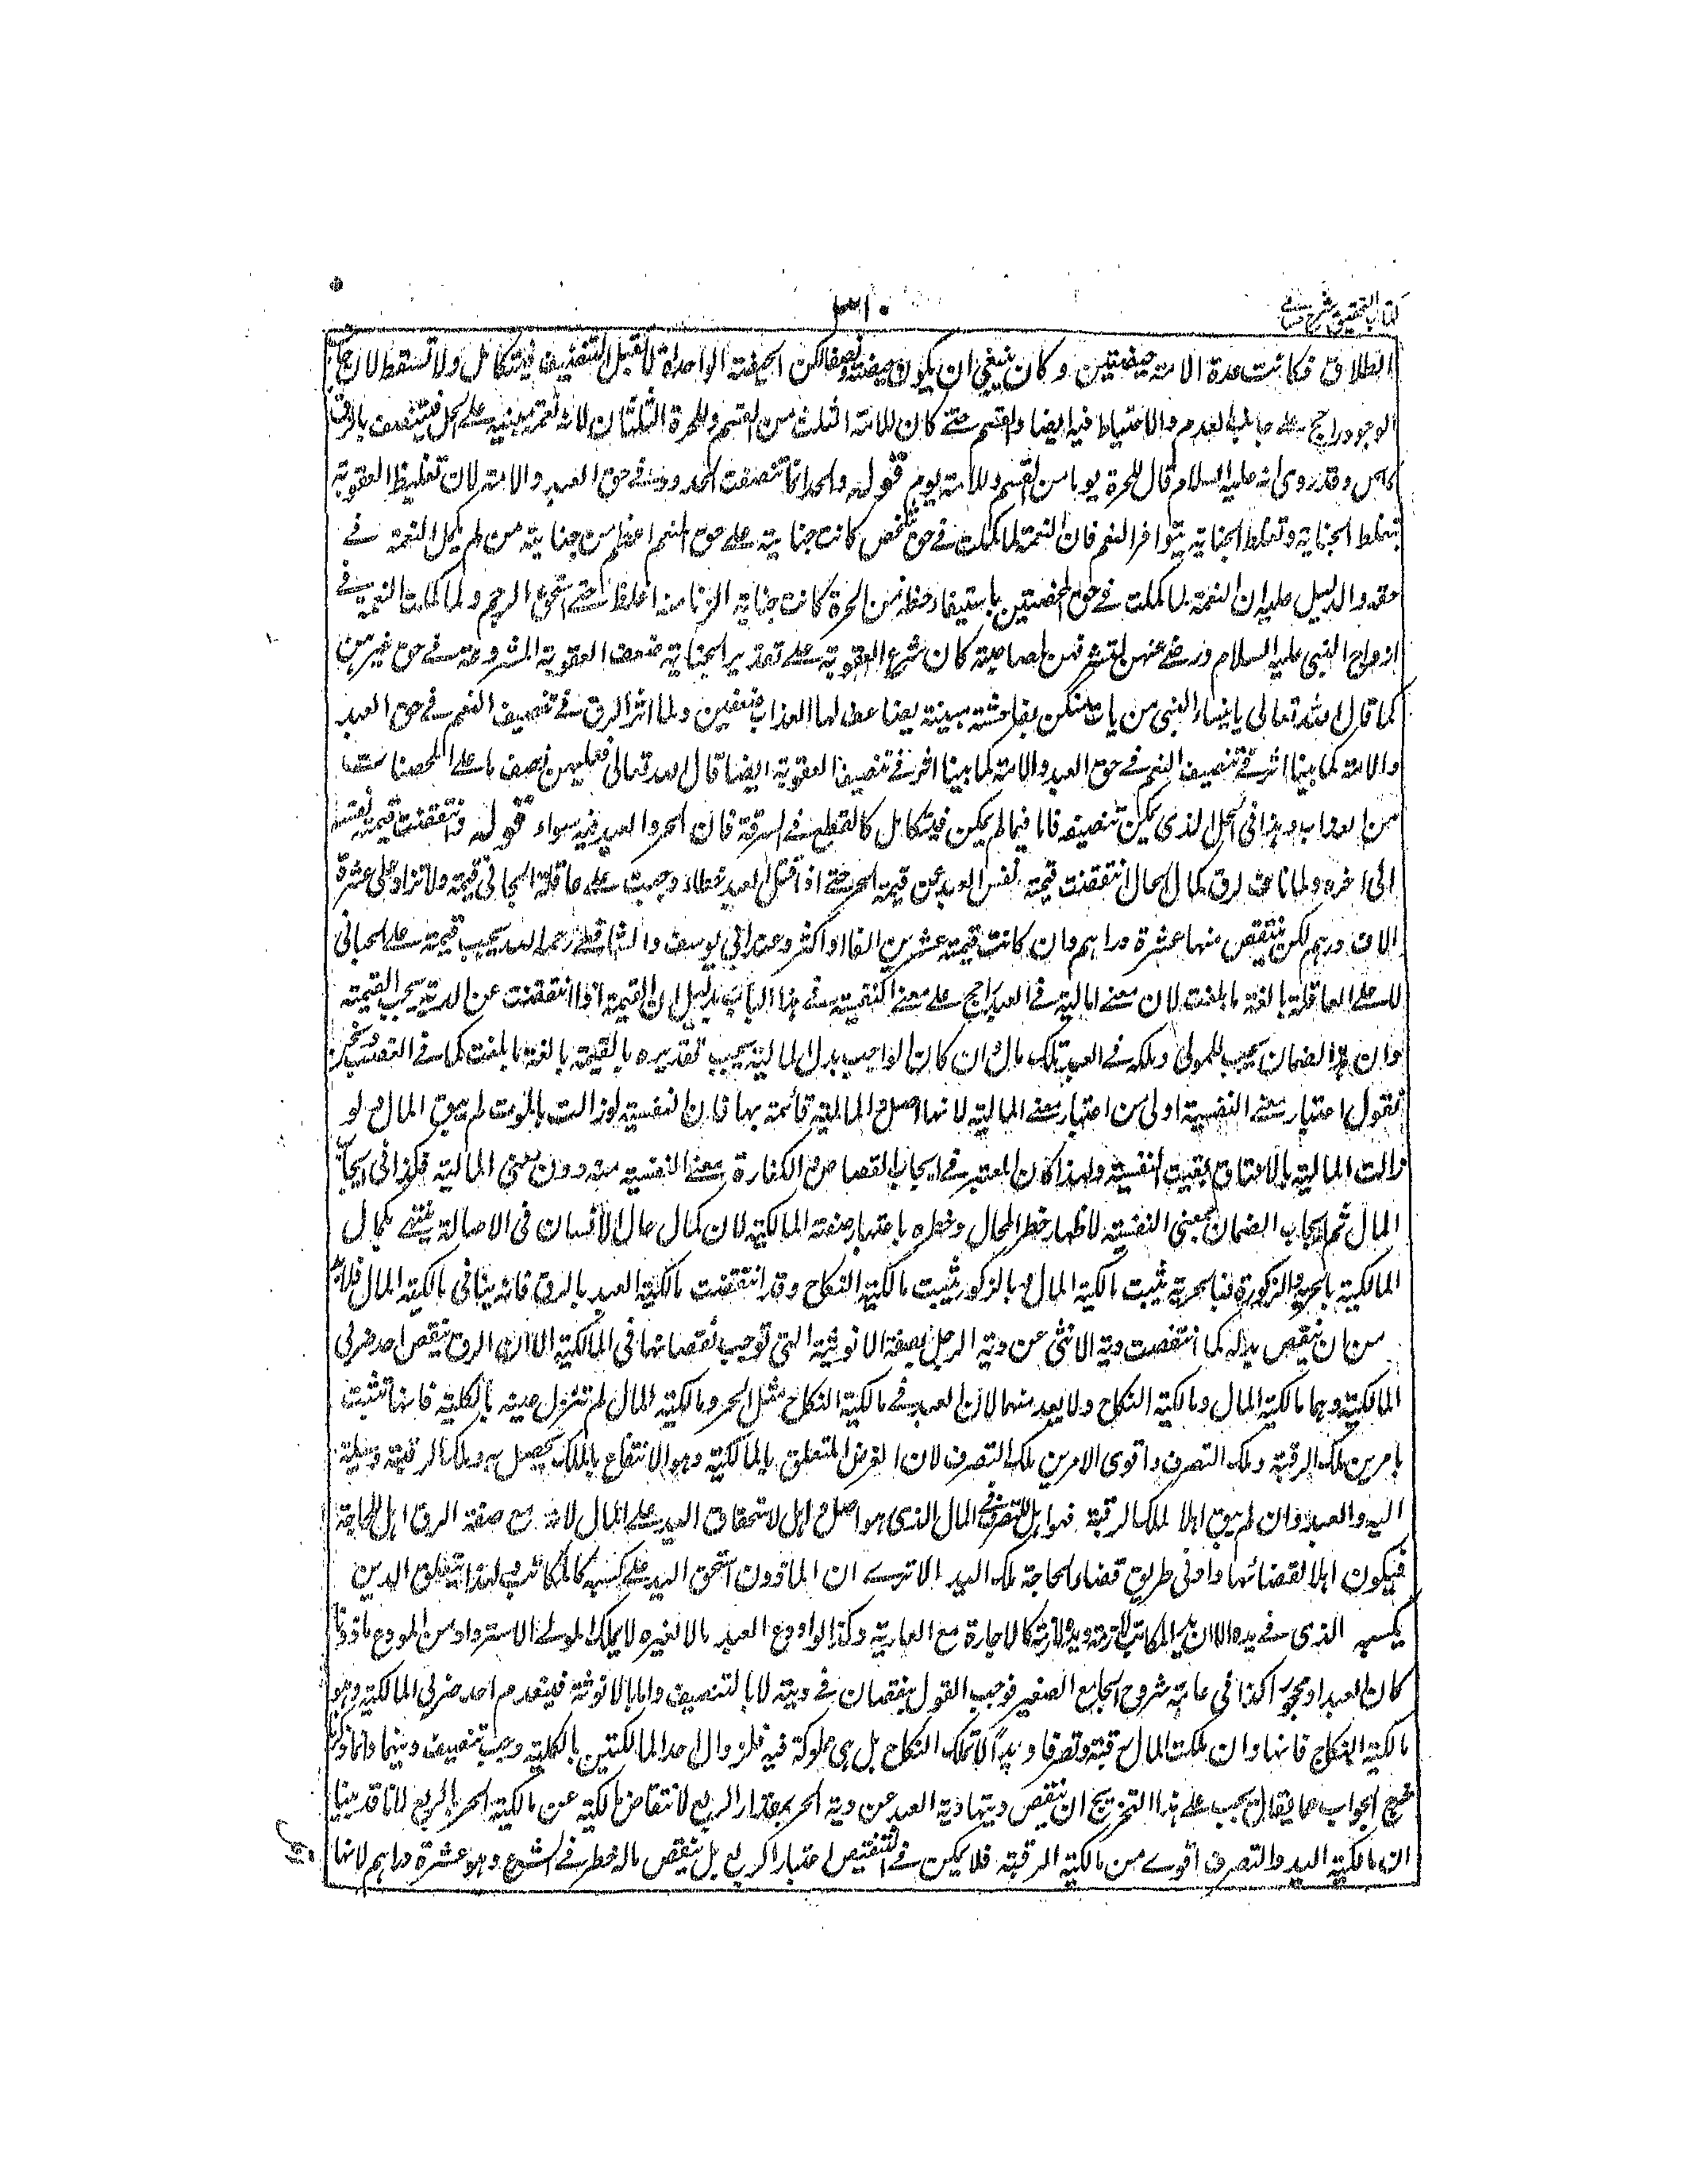 كتاب التحقيق شرح حسامى
٣١٠
الطلاق فكانت عدة الامة حيضتين وكان ينبغي ان يكون حيضة ونصفا لكن الحيضة الواحدة لا تقبل التنصيف فيتكامل ولا تسقط لان جانب
الوجود راجح على جانب العدم والاحتياط فيه ايضا والقسم حتى كان للامة الثلث من القسم وللحرة الثلثان لانه نعمة مبنية على الحل فيتنصف بالرق
وقد روى انه عليه السلام قال للحرة يومان من القسم وللامة يوم قوله والحد انما تنصفت الحدود في حق العبد والامة لان تغليظ العقوبة
بتغلظ الجناية وتغلظ الجناية بتوافر النعم فان النعمة لما كملت في حق شخص كانت جناية على حق المنعم اعظم من جناية من لم يكمل النعمة في
حقه والدليل عليه ان النعمة لما كملت في حق المحصنين باستيفاء حظه من الحرة كانت جناية الزنا منه اغلظ حتى استحق الرجم ولما كملت النعمة في
ازواج النبي عليه السلام ورضى عنهن لتشرفهن بصاحبه كان شرع العقوبة على تقدير الجناية ضعف العقوبة المشروعة في حق غيرهن
كما قال الله تعالى يا نساء النبي من يات منكن بفاحشة مبينة يضاعف لها العذاب ضعفين ولما اثر الرق في تنصيف النعم في حق العبد
والامة كما بينا اثر في تنصيف العقوبة ايضا قال الله تعالى فعليهن نصف ما على المحصنات
من العذاب وهذا في الحل الذى يمكن تنصيفه فاما فيما لم يمكن فيتكامل كالقطع في السرقة فان الحر والعبد فيه سواء قوله وانتقصت قيمة نفسه
الى اخره ولما نافى الرق كمال الحال انتقصت قيمة نفس العبد عن قيمة الحر حتى اذا قتل العبد خطاء وجبت على عاقلة الجاني قيمته ولا تزاد على عشرة
الاف درهم لكن ينتقص منها عشرة دراهم وان كانت قيمته عشرين الفا او اكثر وعند ابي يوسف والشافعي رحمهما الله يجب قيمته على الجاني
لا على العاقلة بالغة ما بلغت لان معنى المالية في العبد راجح على معنى النفسية في هذا الباب بدليل ان القيمة اذا انتقصت عن الدية يجب القيمة
وان هذا الضمان يجب للمولى وملكه في العبد ملك مال وان كان الواجب بدل المالية يجب تقديره بالقيمة بالغة ما بلغت كما في الغصب ونحن
نقول اعتبار معنى النفسية اولى من اعتبار معنى المالية لانها اصل والمالية قائمة بها فان النفسية لو زالت بالموت لم يبق المال ولو
زالت المالية بالاعتاق بقيت النفسية ولهذا كان المعتبر في ايجاب القصاص والكفارة معنى النفسية منه دون معنى المالية فكذا في ايجاب
المال ثم ايجاب الضمان بمعنى النفسية لاظهار خطر المحل وخطره باعتبار صفة المالكية لان كمال حال الانسان في الاصالة ينتهي بكمال
المالكية بالحرية والذكورة فبالحرية تثبت مالكية المال وبالذكورة يثبت مالكية النكاح وقد انتقصت مالكية العبد بالرق فانه ينافي مالكية المال فلا بد
من ان ينتقص بدله كما انتقصت دية الانثى عن دية الرجل بصفة الانوثة التي توجب نقصانها في المالكية الا ان الرق ينقص احد ضربى
المالكية وهما مالكية المال ومالكية النكاح ولا يعدمهما لان العبد في مالكية النكاح مثل الحر ومالكية المال لم تزول عنه بالكلية فانها تثبت
بامرين ملك الرقبة وملك التصرف واقوى الامرين ملك التصرف لان الغرض المتعلق بالمالكية وهو الانتفاع بالملك يحصل به وملك الرقبة وسيلة
اليه والعبد وان لم يبق اهلا لملك الرقبة فهو اهل للتصرف في المال الذى هو اصل واهل لاستحقاق اليد على المال لانه مع صفة الرق اهل للحاجة
فيكون اهلا لقضائها وادنى طريق قضاء الحاجة ملك اليد الا ترى ان الماذون استحق اليد على كسبه كالمكاتب ولهذا يتعلق الدين
بكسبه الذى في يده الا ان يد المكاتب لازمة ويده غير لازمة كالاجارة مع العارية وكذا لو اودع العبد مالا لغيره لا يملك المولى الاسترداد من المودع ماذونا
كان العبد او محجورا كذا في عامة شروح الجامع الصغير فوجب القول بنقصان في ديته لا بالتنصيف واما بالانوثة فينعدم احد ضربى المالكية وهو
مالكية النكاح فانها وان ملكت المال رقبة وتصرفا ويدا لا تملك النكاح بل هى مملوكة فيه فلزوال احد المالكيتين بالكلية وجب تنصيف ديتها وانما ذكرنا
خرج الجواب عما يقال يجب على هذا التخريج ان ينتقص دية العبد عن دية الحر بمقدار الربع لانتقاض مالكيته عن مالكية الحر بالربع لانا قد بينا
ان مالكية اليد والتصرف اقوى من مالكية الرقبة فلا يمكن في التنقيص اعتبار الربع بل ينقص ماله خطر في الشرع وهو عشرة دراهم لانها